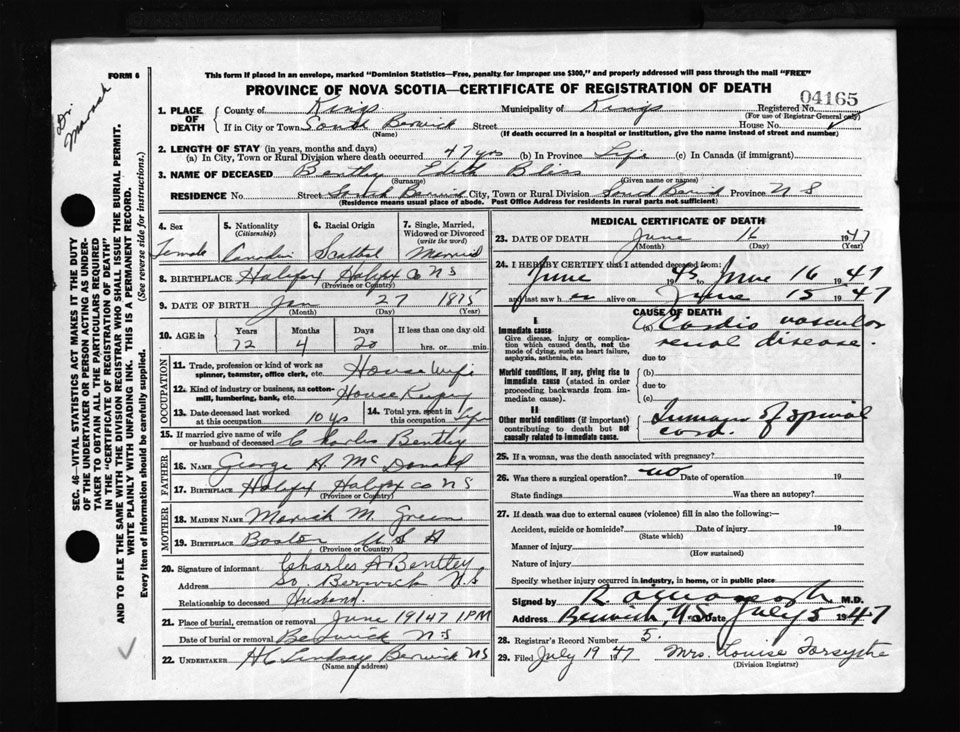 FORM 6
Dr.
This form if placed in an envelope, marked "Dominion Statistics—Free, penalty for improper use $300," and properly addressed will pass through the mail "FREE"
PROVINCE OF NOVA SCOTIA—CERTIFICATE OF REGISTRATION OF DEATH
04165
1. PLACE OF DEATH County of Kings Municipality of Kings Registered No.
(For use of Registrar General only)
If in City or Town South Berwick Street House No.
(Name) (If death occurred in a hospital or institution, give the name instead of street and number)
2. LENGTH OF STAY (in years, months and days)
(a) In City, Town or Rural Division where death occurred 47 yrs (b) In Province Life (c) In Canada (if immigrant)
3. NAME OF DECEASED Bentley Edith Bliss
(Surname) (Given name or names)
RESIDENCE No. Street South Berwick City, Town or Rural Division South Berwick Province N S
(Residence means usual place of abode. Post Office Address for residents in rural parts not sufficient)
4. Sex 5. Nationality 6. Racial Origin 7. Single, Married, Widowed or Divorced
(Citizenship) (write the word)
Female Canadian Married
8. BIRTHPLACE Halifax Halifax Co N S
(Province or Country)
9. DATE OF BIRTH Jan 27 1875
(Month) (Day) (Year)
10. AGE in Years Months Days If less than one day old
72 4 20 hrs. or min.
OCCUPATION
11. Trade, profession or kind of work as spinner, teamster, office clerk, etc. House Wife
12. Kind of industry or business, as cotton-mill, lumbering, bank, etc. House Keeping
13. Date deceased last worked at this occupation 10 yrs 14. Total yrs. spent in this occupation Life
15. If married give name of wife or husband of deceased Charles Bentley
FATHER
16. NAME George A. McDonald
17. BIRTHPLACE Halifax Halifax Co N S
(Province or Country)
MOTHER
18. MAIDEN NAME M. Green
19. BIRTHPLACE Boston U S A
(Province or Country)
20. Signature of informant Charles A Bentley
Address So. Berwick N.S
Relationship to deceased Husband.
21. Place of burial, cremation or removal June 19 1947 1 PM
Date of burial or removal Berwick N S
22. UNDERTAKER H C Lindsay Berwick N S
(Name and address)
MEDICAL CERTIFICATE OF DEATH
23. DATE OF DEATH June 16 1947
(Month) (Day) (Year)
24. I HEREBY CERTIFY that I attended deceased from:
June 1945 June 16 1947
and last saw h er alive on June 15 1947
CAUSE OF DEATH
I
Immediate cause (a) Cardio vascular
Give disease, injury or complication which caused death, not the mode of dying, such as heart failure, asphyxia, asthenia, etc.
renal disease.
due to
Morbid conditions, if any, giving rise to immediate cause (stated in order proceeding backwards from immediate cause). (b)
due to
(c)
II
Other morbid conditions (if important) contributing to death but not causally related to immediate cause. of spinal
cord.
25. If a woman, was the death associated with pregnancy?
26. Was there a surgical operation? no Date of operation 19
State findings Was there an autopsy?
27. If death was due to external causes (violence) fill in also the following:—
Accident, suicide or homicide? Date of injury 19
(State which)
Manner of injury
(How sustained)
Nature of injury
Specify whether injury occurred in industry, in home, or in public place
Signed by M.D.
Address Berwick, N.S. Date July 5 1947
28. Registrar's Record Number 5.
29. Filed July 19 1947 Mrs. Louise Forsythe
(Division Registrar)
SEC. 46—VITAL STATISTICS ACT MAKES IT THE DUTY
OF THE UNDERTAKER OR PERSON ACTING AS UNDER-
TAKER TO OBTAIN ALL THE PARTICULARS REQUIRED
IN THE "CERTIFICATE OF REGISTRATION OF DEATH"
AND TO FILE THE SAME WITH THE DIVISION REGISTRAR WHO SHALL ISSUE THE BURIAL PERMIT.
WRITE PLAINLY WITH UNFADING INK. THIS IS A PERMANENT RECORD.
Every item of information should be carefully supplied. (See reverse side for instructions.)